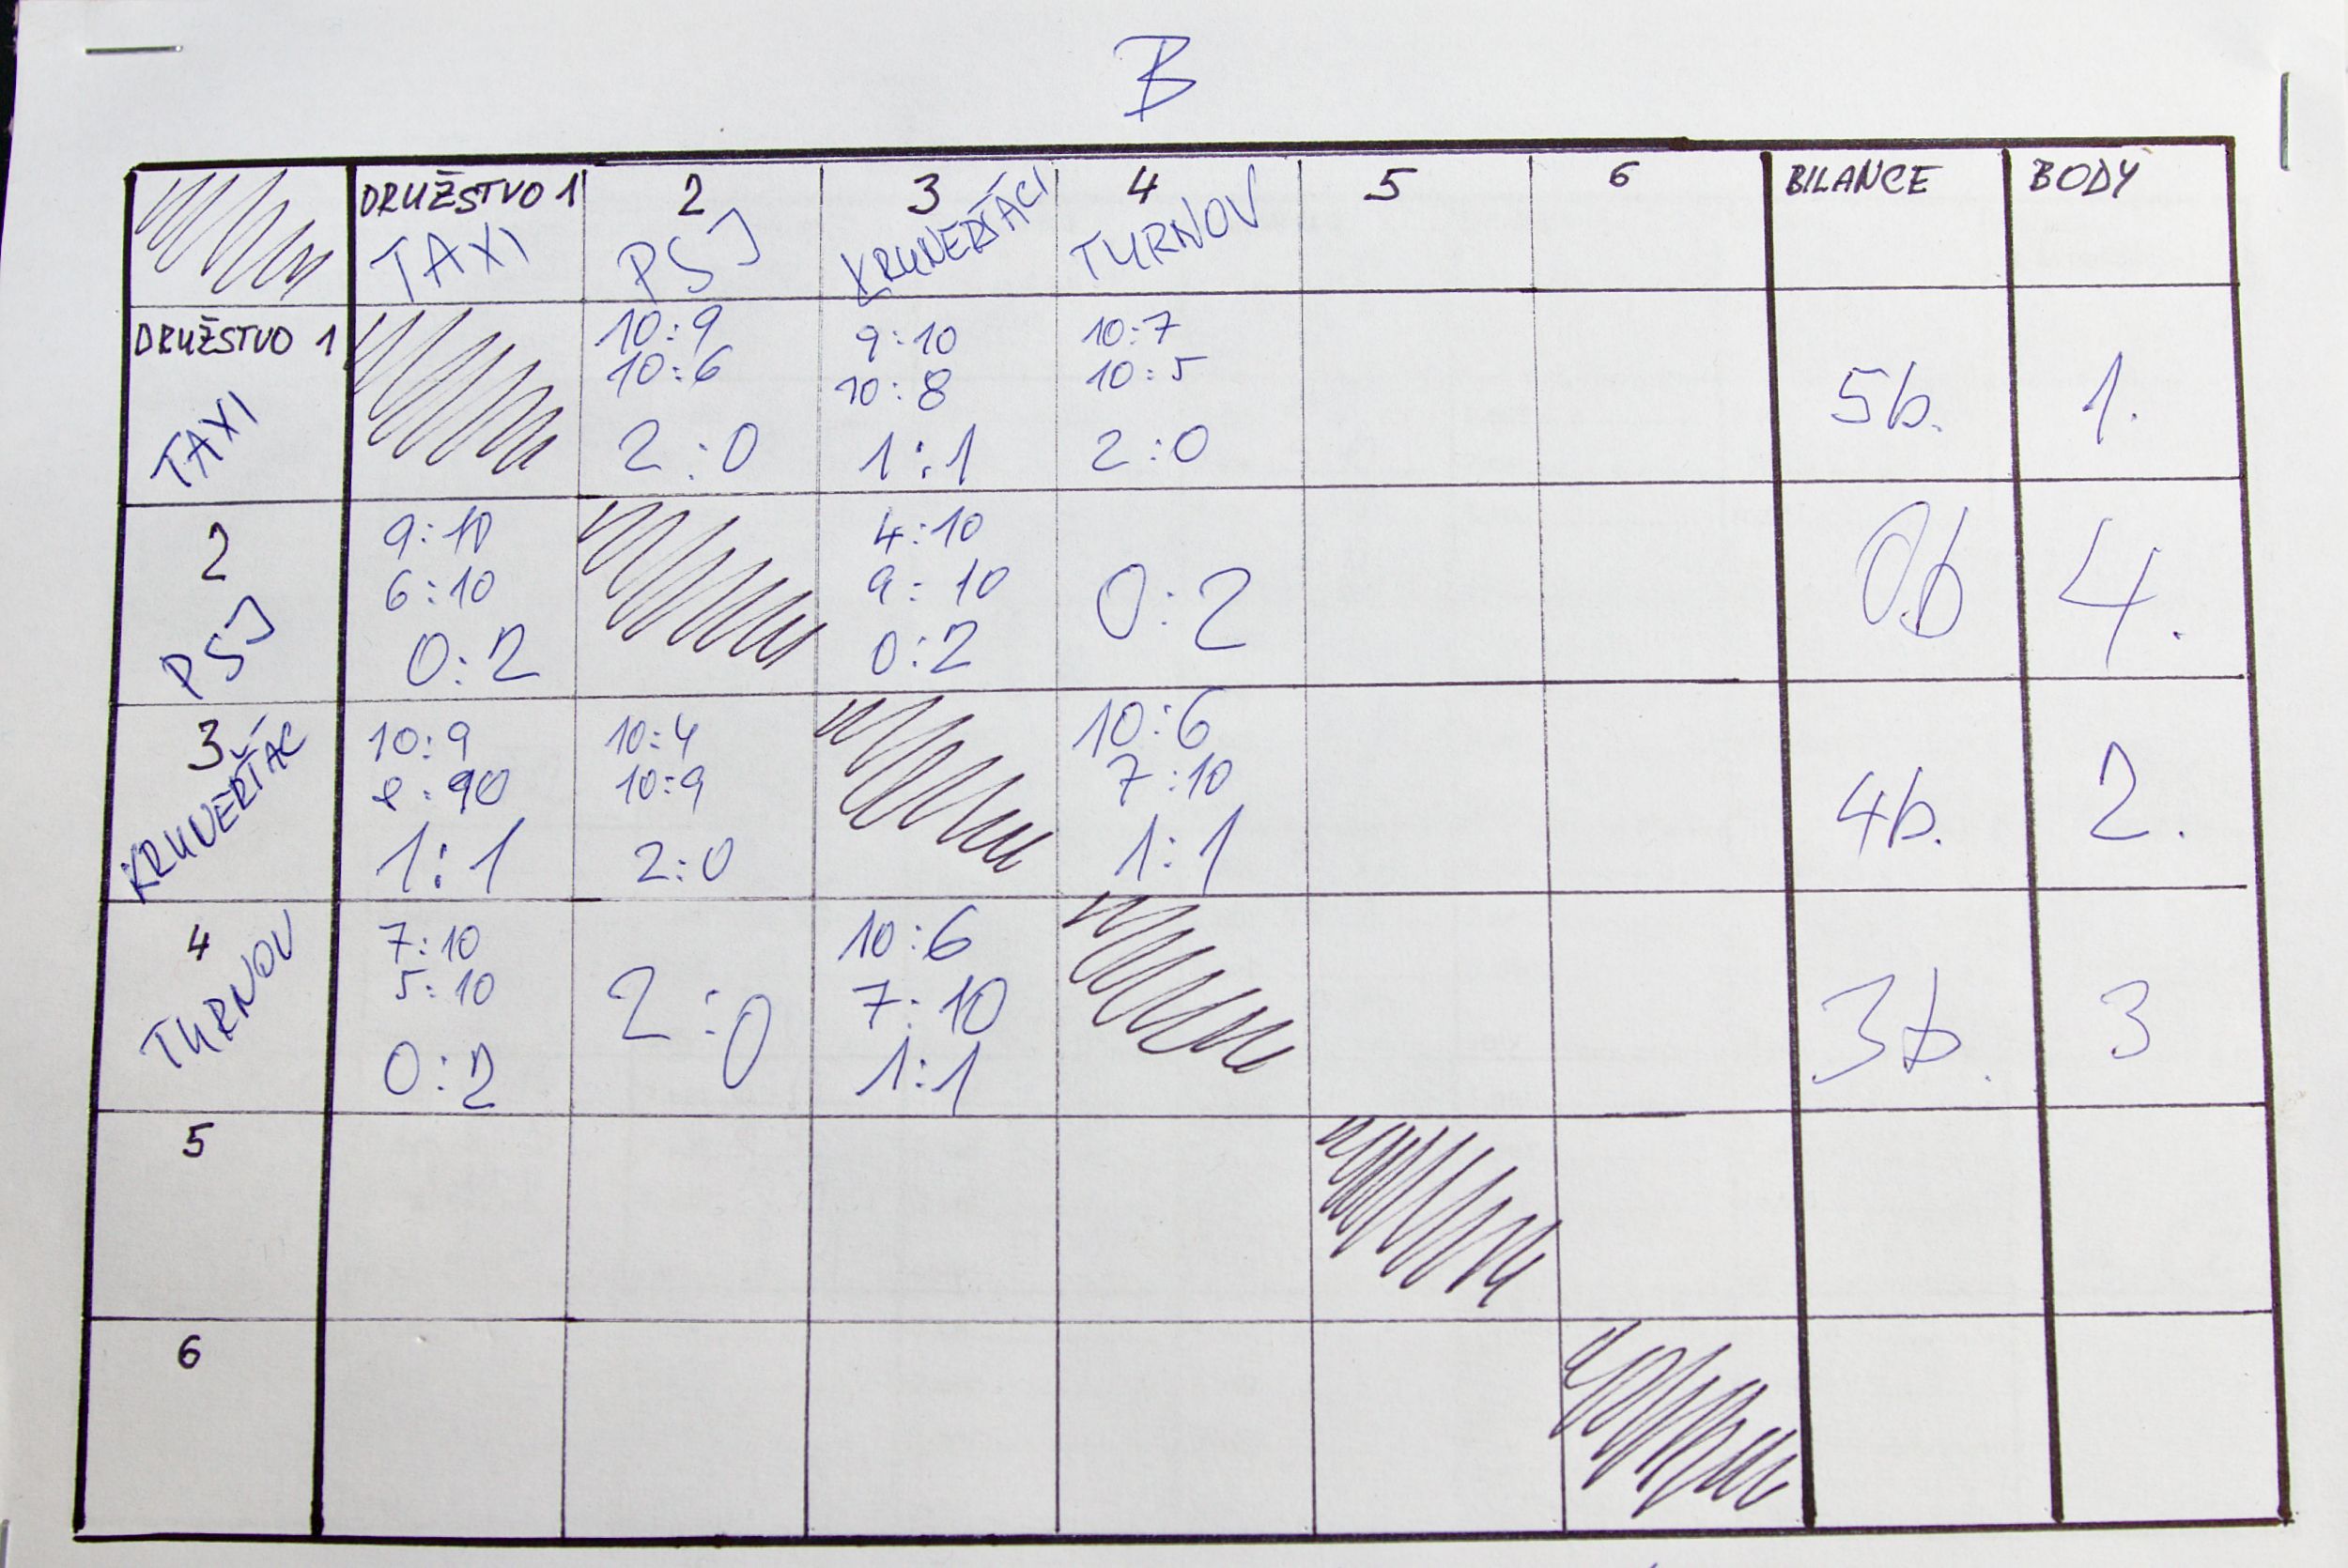 B
DRUŽSTVO 1 2 3 4 5 6 BILANCE BODY
TAXI PSJ KRUNERŤÁCI TURNOV
DRUŽSTVO 1
TAXI
10:9
10:6
2:0
9:10
10:8
1:1
10:7
10:5
2:0
5b.
1.
2
PSJ
9:10
6:10
0:2
4:10
9:10
0:2
0:2
0b
4.
3
KRUNERŤÁC
10:9
1:1
10:4
10:9
2:0
10:6
7:10
1:1
4b.
2.
4
TURNOV
7:10
5:10
0:2
2:0
10:6
7:10
1:1
3b.
3
5
6